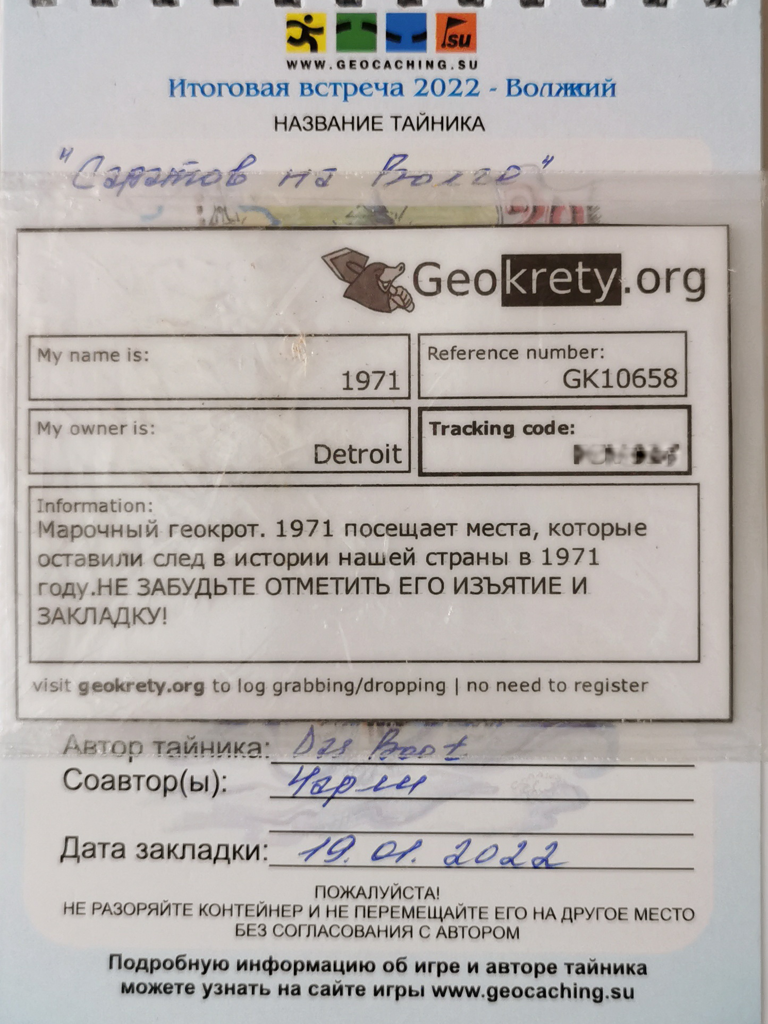 .su
WWW.GEOCACHING.SU
Итоговая встреча 2022 - Волжский
НАЗВАНИЕ ТАЙНИКА
"Саратов на Волге"
Geokrety.org
My name is:
1971
Reference number:
GK10658
My owner is:
Detroit
Tracking code:
Information:
Марочный геокрот. 1971 посещает места, которые
оставили след в истории нашей страны в 1971
году.НЕ ЗАБУДЬТЕ ОТМЕТИТЬ ЕГО ИЗЪЯТИЕ И
ЗАКЛАДКУ!
visit geokrety.org to log grabbing/dropping | no need to register
Автор тайника: Das Boot
Соавтор(ы): Чарли
Дата закладки: 19.01.2022
ПОЖАЛУЙСТА!
НЕ РАЗОРЯЙТЕ КОНТЕЙНЕР И НЕ ПЕРЕМЕЩАЙТЕ ЕГО НА ДРУГОЕ МЕСТО
БЕЗ СОГЛАСОВАНИЯ С АВТОРОМ
Подробную информацию об игре и авторе тайника
можете узнать на сайте игры www.geocaching.su